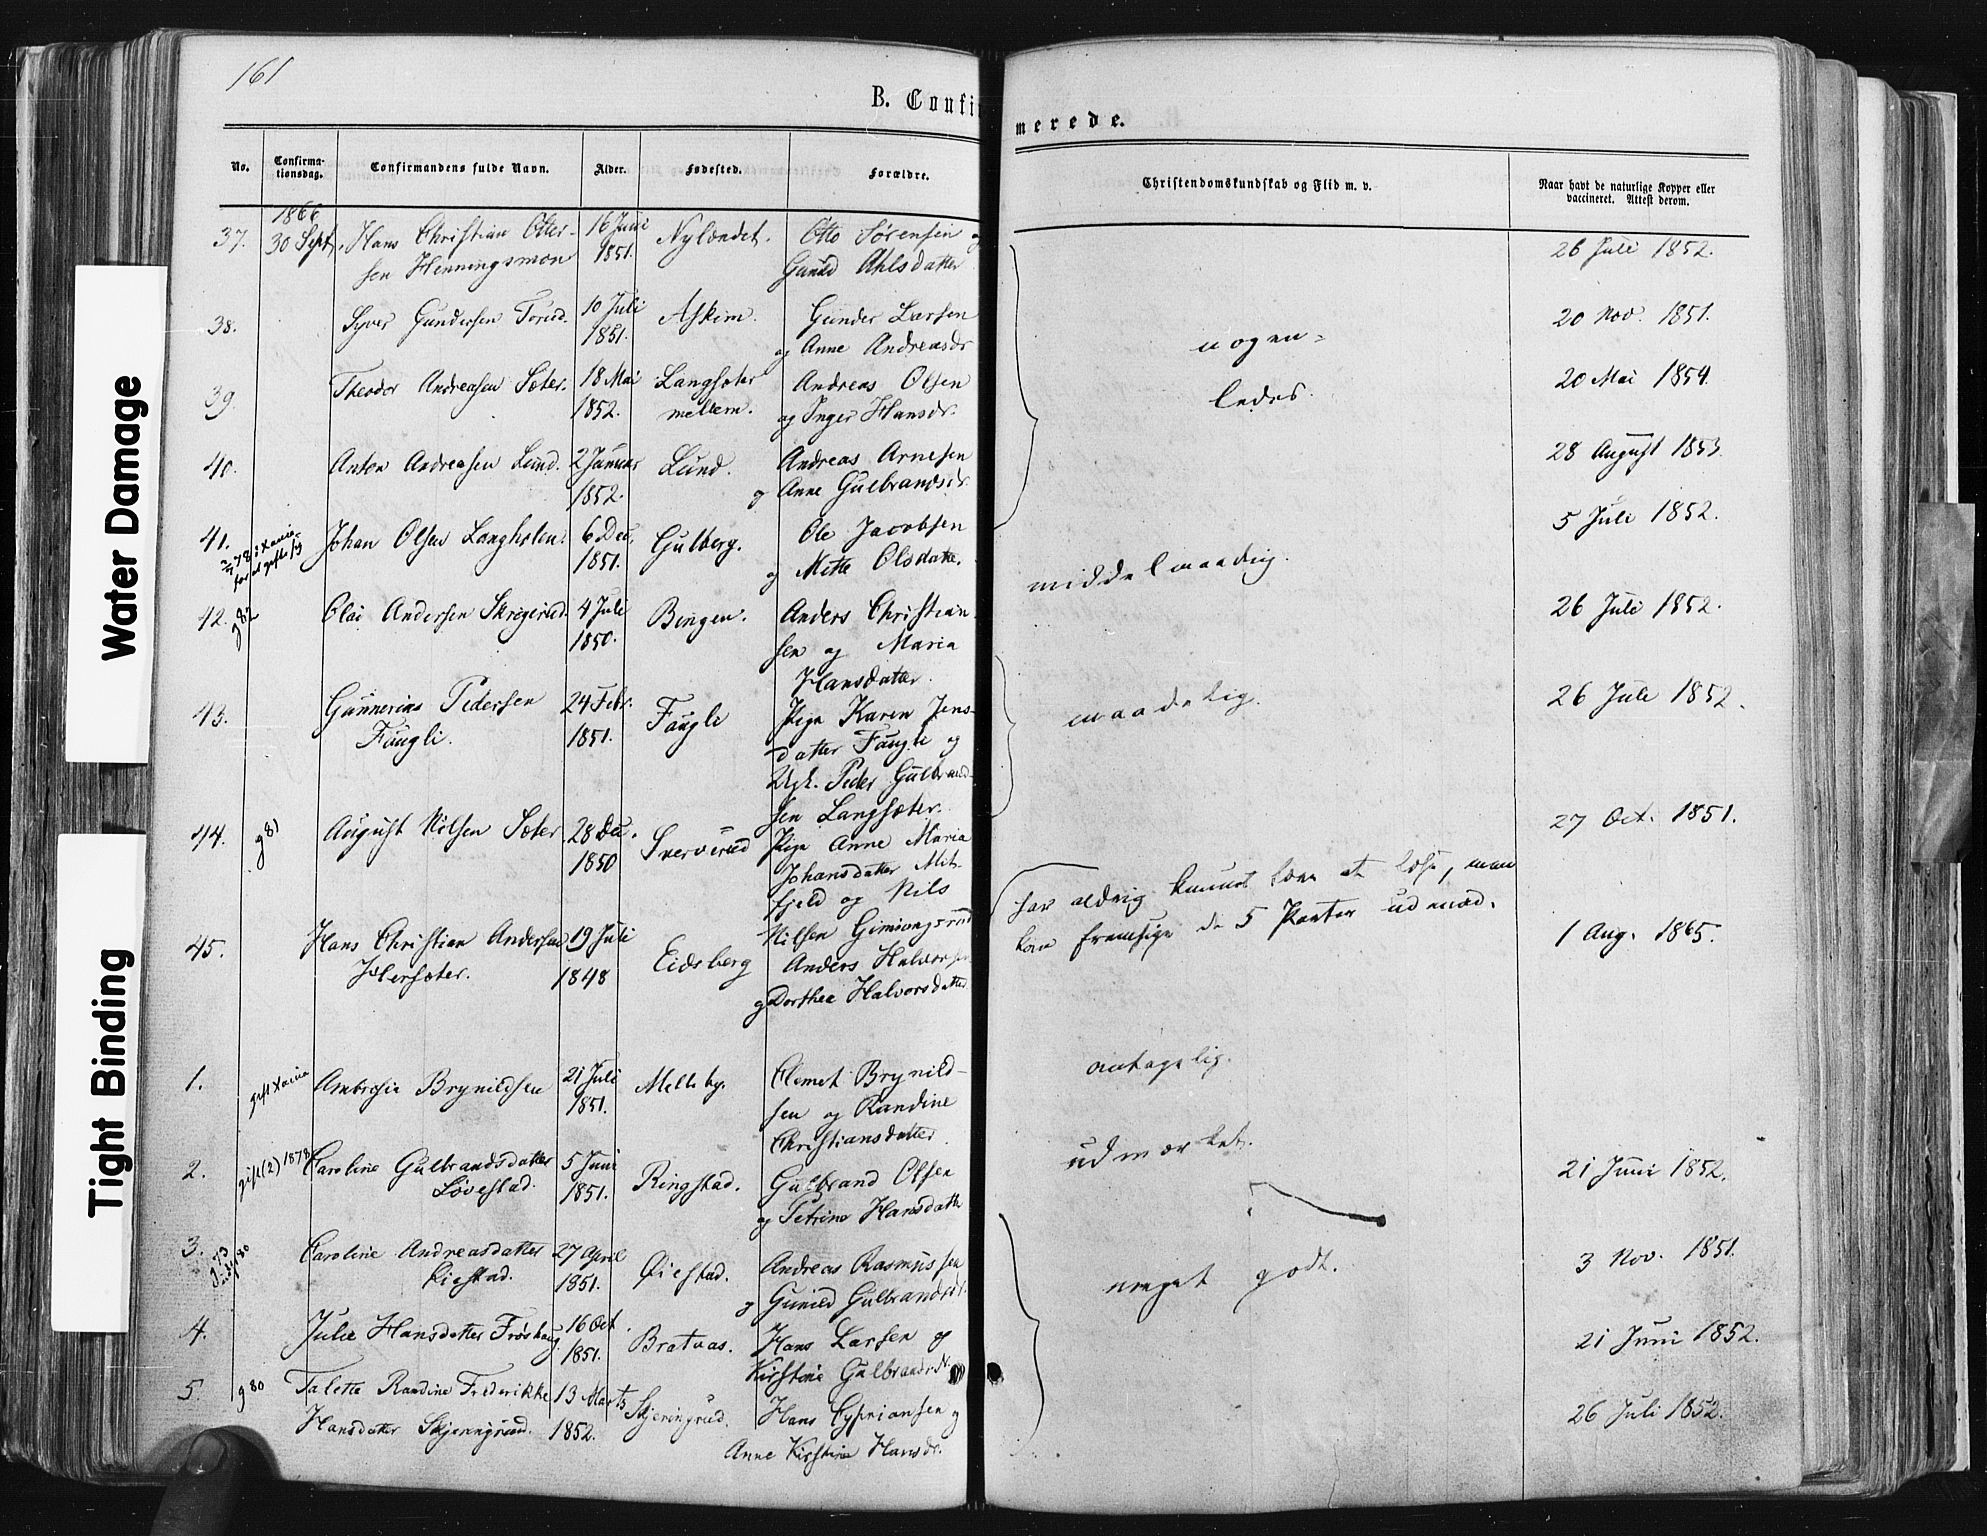 161
B. Confirmerede.
No.
Confirma-
tionsdag.
Confirmandens fulde Navn.
Alder.
Fødested.
Forældre.
Christendomskundskab og Flid m. v.
Naar havt de naturlige Kopper eller
vaccineret. Attest derom.
Water Damage
Tight Binding
1866
37. 30 Sept. Hans Christian Otter- 16 Juni Nylændet. Otto Sørensen og 26 Juli 1852.
sen Henningsmon 1851. Gunild Ahlsdatter
38. Syver Gundersen Torud. 10 Juli Askim. Gunder Larsen 20 Nov. 1851.
1851. og Anne Andreasdr nogen-
39. Theodor Andreasen Sæter. 18 Mai Langsæter Andreas Olsen 20 Mai 1854.
1852. mellem. og Inger Hansdr. ledes.
40. Anton Andreasen Lund. 2 Januar Lund. Andreas Arnesen 28 August 1853.
1852. og Anne Gulbrandsdr.
41. Johan Olsen Langholen. 6 Dec. Gulberg. Ole Jacobsen 5 Juli 1852.
78 i Xania
for at gifte sig
1851. og Mette Olsdatter. middelmaadig.
42. g 82 Olai Andersen Skrigerud. 4 Juli Bingen. Anders Christian- 26 Juli 1852.
1850. sen og Maria
Hansdatter.
43. Gunnerius Pedersen 24 Febr. Faugli Pige Karen Jens- maadelig. 26 Juli 1852.
Faugli. 1851. datter Faugli og
Ugk. Peder Gulbrand-
sen Langsæter.
44. g 81 August Nilsen Sæter. 28 Dec. Sververud Pige Anne Maria 27 Oct. 1851.
1850 Johansdatter Mit-
fjeld og Nils har aldrig kunnet lære at læse, men
Nilsen Gimingsrud kan fremsige de 5 Parter udenad.
45. Hans Christian Andersen 19 Juli Eidsberg Anders Halvorsen 1 Aug. 1865.
Hersæter. 1848 og Dorthea Halvorsdatter.
1. gift Xania Ambrosia Brynildsen 21 Juli Melleby. Clemet Brynild- antagelig.
1851. sen og Randine
Christiansdatter. udmærket.
2. gift (2) 1878 Caroline Gulbrandsdatter 5 Juni Ringstad. Gulbrand Olsen 21 Juni 1852.
Løvestad. 1851. og Petrine Hansdatter
3. Caroline Andreasdatter 27 April Øiestad. Andreas Rasmussen 3 Nov. 1851.
Øiestad. 1851. og Gunild Gulbrandsdr. meget godt.
4. Julie Hansdatter Frøshaug 16 Oct. Bratvas. Hans Larsen og 21 Juni 1852.
1851. Kirstine Gulbrandsd.
5. g 80 Talette Randine Frederikke 13 Marts Skjeringrud. Hans Cypriansen og 26 Juli 1852.
Hansdatter Skjeringrud. 1852. Anne Kirstine Hansdr.